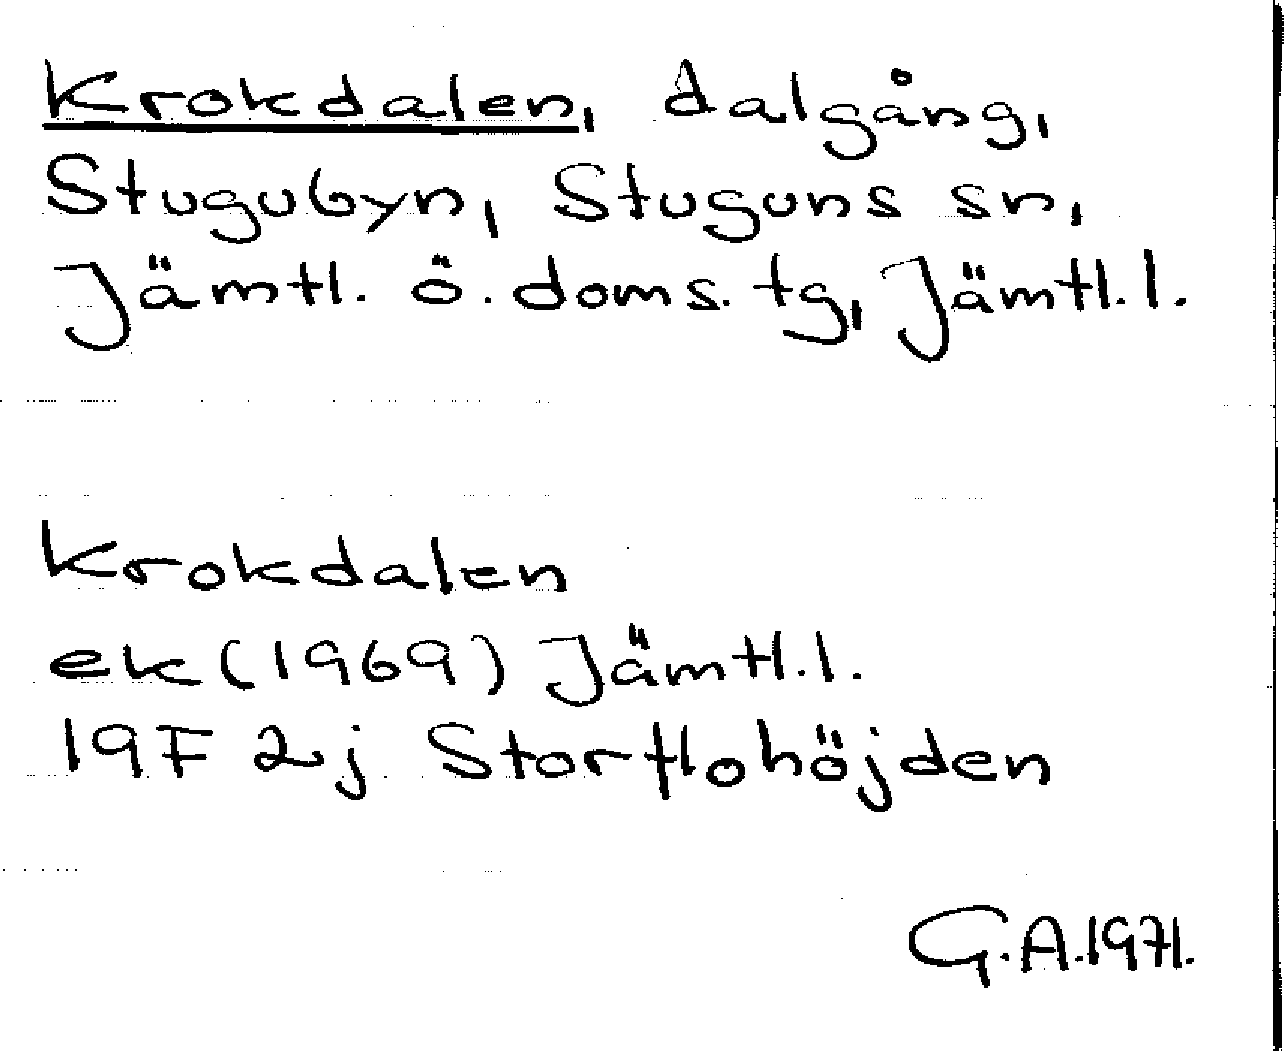 Krokdalen, dalgång,
Stugubyn, Stuguns sn,
Jämtl. ö. doms. tg, Jämtl. l.
Krokdalen
ek (1969) Jämtl. l.
19F 2j Storflohöjden
G.A. 1971.